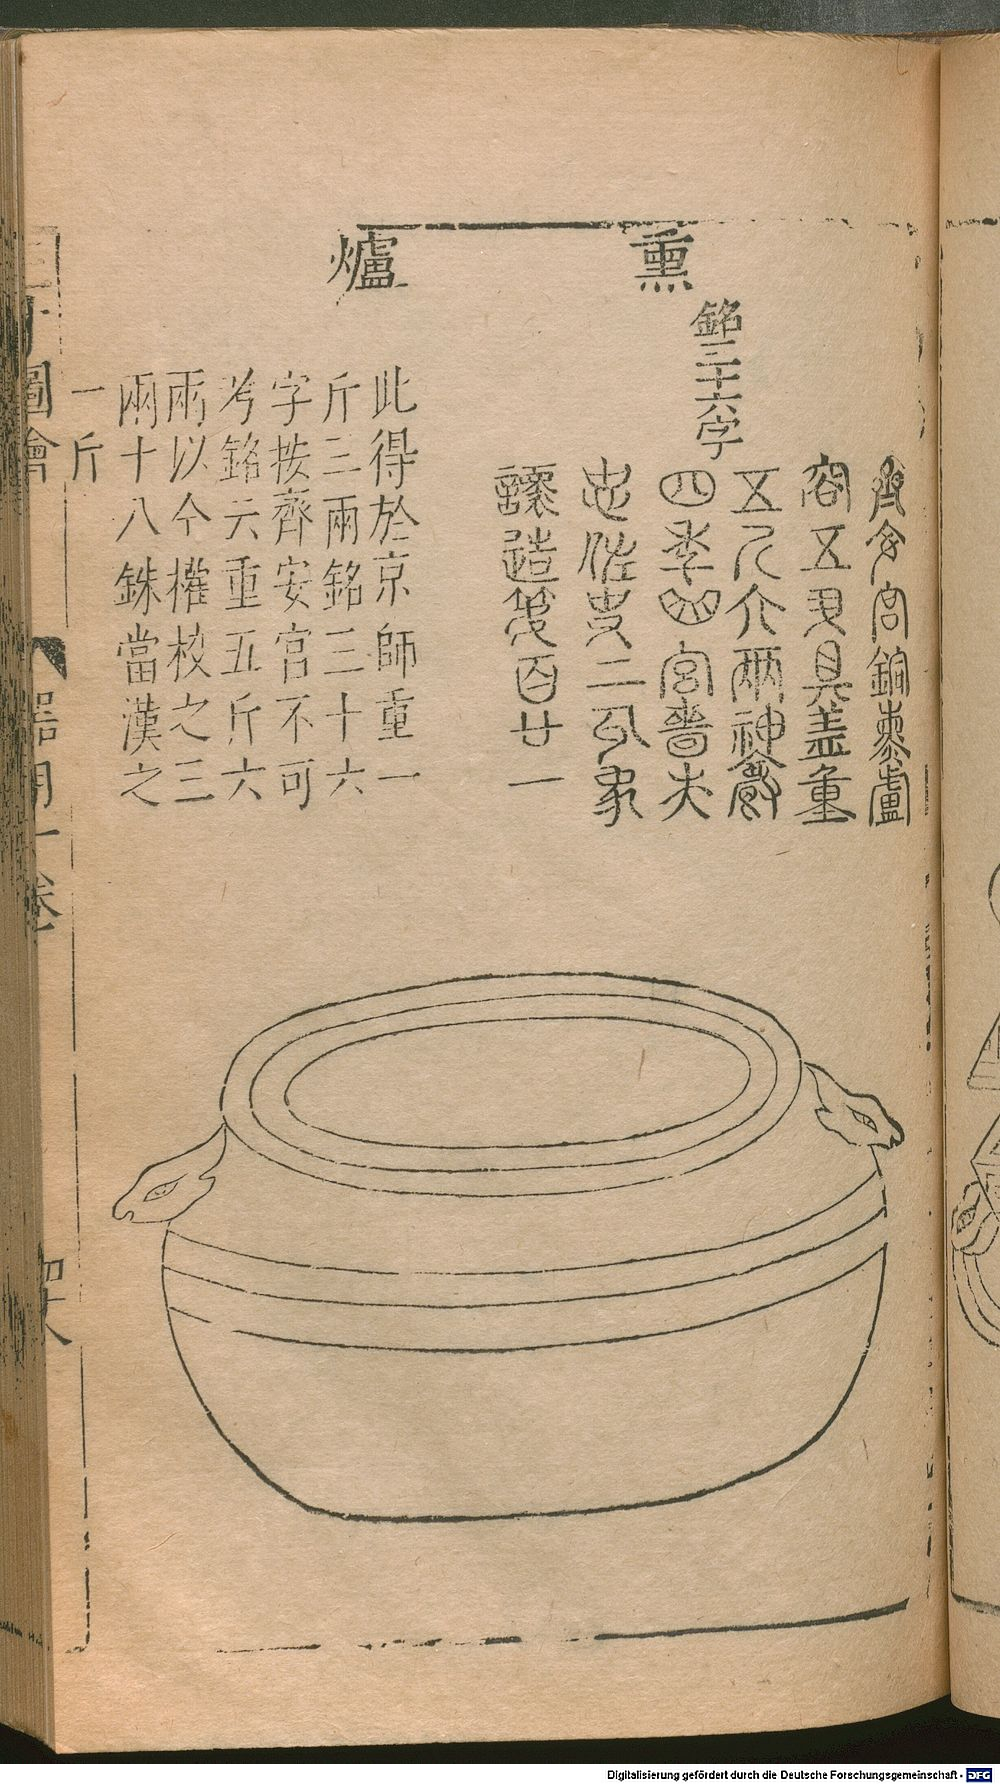 熏爐
銘三十六字
齊安宮銅熏盧
容五升具盖重
五斤六兩神爵
四年四宮嗇夫
忠佐史二
讓造第百廿一
此得於京師重一
斤三兩銘三十六
字按齊安宮不可
考銘云重五斤六
兩以今權校之三
兩十八銖當漢之
一斤
圖會
器用一卷
Digitalisierung gefördert durch die Deutsche Forschungsgemeinschaft - DFG